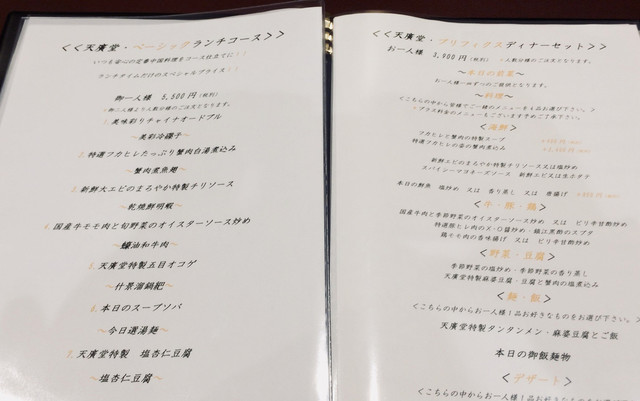 <<天廣堂・ベーシックランチコース>>
いつも安心の定番中国料理をコース仕立てに!!
ランチタイムだけのスペシャルプライス!!
御一人様 5,500円(税別)
・御二人様より人数分様のご注文となります。
1.美味彩りチャイナオードブル
~美彩冷碟子~
2.特選フカヒレたっぷり蟹肉白湯煮込み
~蟹肉煮魚翅~
3.新鮮大エビのまろやか特製チリソース
~乾焼鮮明蝦~
4.国産牛モモ肉と旬野菜のオイスターソース炒め
~蠔油和牛肉~
5.天廣堂特製五目オコゲ
~什景溜鍋粑~
6.本日のスープソバ
~今日選湯麺~
7.天廣堂特製 塩杏仁豆腐
~塩杏仁豆腐~
<<天廣堂・プリフィクスディナーセット>>
お一人様 3,900円(税別) ・人数分様のご注文となります。
~本日の前菜~
お一人様一皿ずつのご提供となります。
~料理~
<こちらの中から皆様でご一緒のメニューを1品お選び下さい。>
・プラス料金のメニューもございますぞご了承下さい。
<海鮮>
フカヒレと蟹肉の特製スープ
特選フカヒレの姿の蟹肉煮込み
新鮮エビのまろやか特製チリソース又は塩炒め
スパイシーマヨネーズソース 新鮮エビ又は生ホタテ
本日の鮮魚 塩炒め 又は 香り蒸し 又は 唐揚げ
<牛・豚・鶏>
国産牛肉と季節野菜のオイスターソース炒め 又は ピリ辛甘酢炒め
特選豚ヒレ肉のX・O醤炒め・鎮江黒酢のスブタ
鶏モモ肉の香味揚げ 又は ピリ辛甘酢炒め
<野菜・豆腐>
季節野菜の塩炒め・季節野菜の香り蒸し
天廣堂特製麻婆豆腐・豆腐と蟹肉の塩煮込み
<麺・飯>
<こちらの中からお一人様1品お好きなものをお選び下さい。>
天廣堂特製タンタンメン・麻婆豆腐とご飯
本日の御飯麺物
<デザート>
<こちらの中からお一人様1品お好きなもの